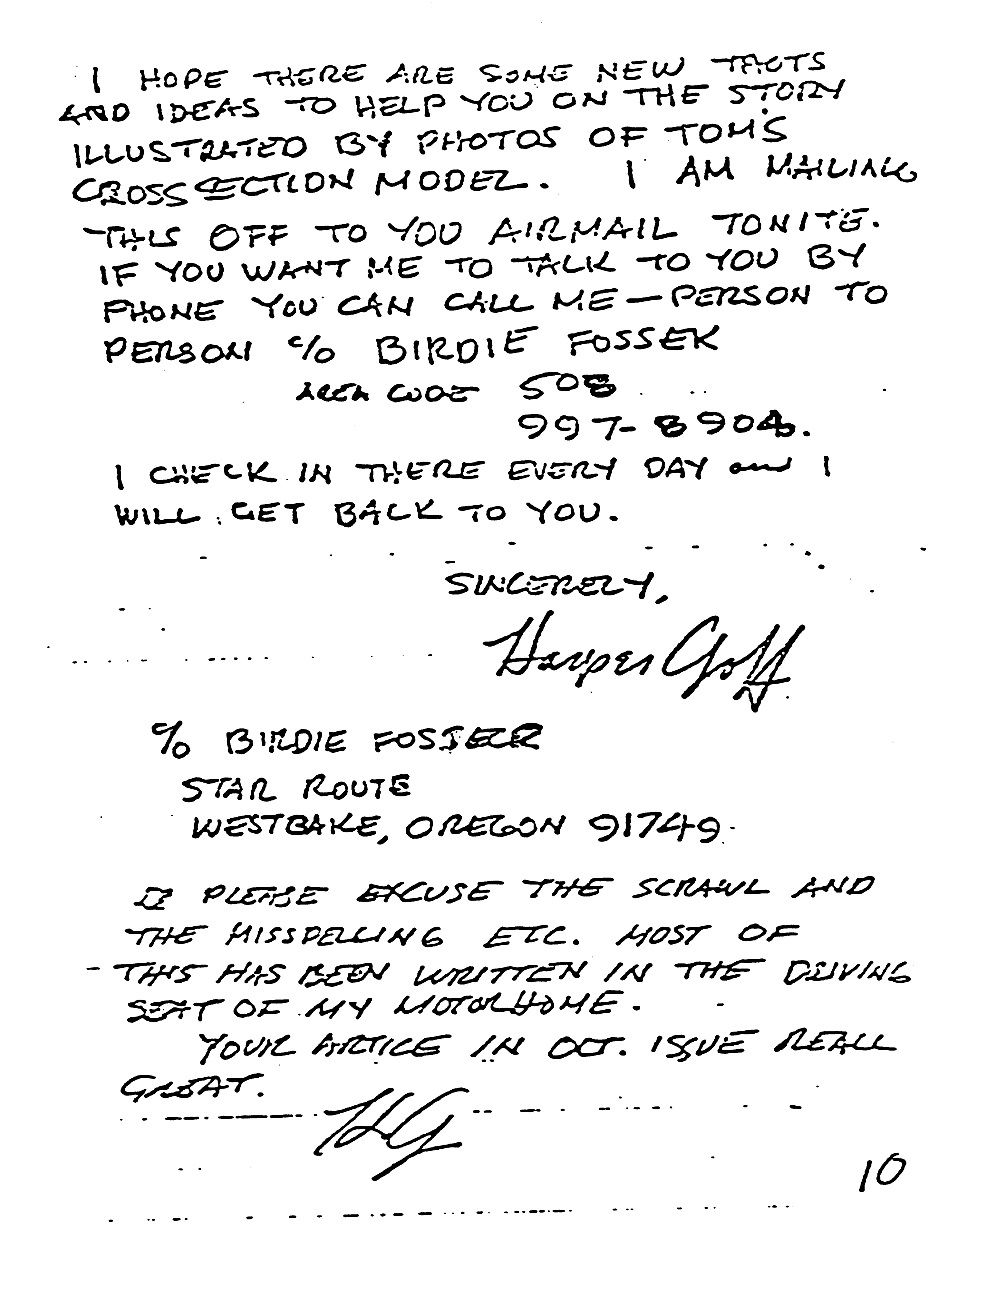 I HOPE THERE ARE SOME NEW FACTS
AND IDEAS TO HELP YOU ON THE STORY
ILLUSTRATED BY PHOTOS OF TOM'S
CROSS SECTION MODEL. I AM MAILING
THIS OFF TO YOU AIRMAIL TONITE.
IF YOU WANT ME TO TALK TO YOU BY
PHONE YOU CAN CALL ME — PERSON TO
PERSON c/o BIRDIE FOSSEK
AREA CODE 508
997-8904.
I CHECK IN THERE EVERY DAY and I
WILL GET BACK TO YOU.
SINCERELY,
Harper Goff
c/o BIRDIE FOSSEK
STAR ROUTE
WESTBAKE, OREGON 91749
PLEASE EXCUSE THE SCRAWL AND
THE MISSPELLING ETC. MOST OF
THIS HAS BEEN WRITTEN IN THE DRIVING
SEAT OF MY MOTORHOME.
YOUR ARTICE IN OCT. ISSUE REALL
GREAT.
HG
10